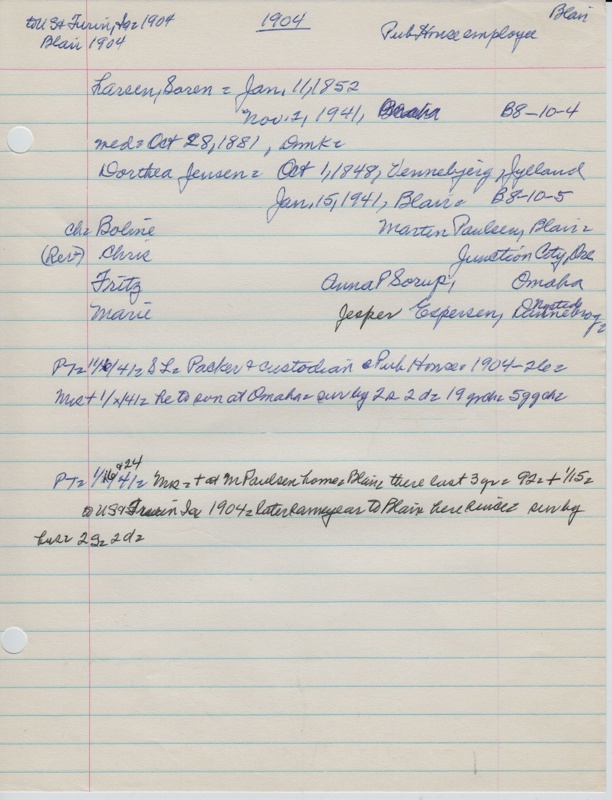 to USA Turin, Ia = 1904
1904
Blair
Blair 1904
Pub House employee
Larsen, Soren = Jan. 11, 1852
Nov. 2, 1941, Omaha B8-10-4
med = Oct 28, 1881, Dmk =
Dorthea Jensen = Oct 1, 1848, Vennebjerg, Jylland
Jan. 15, 1941, Blair = B8-10-5
ch = Boline Martin Paulsen, Blair =
(Rev) Chris Junction City, Ore
Fritz Anna P Sorup, Omaha
Marie Jesper Espersen, Nysted Dannebrog =
PT = 11/ /41 = SL = Packer & custodian Pub House = 1904-26 =
Mrs + 1/ /41 = he to son at Omaha = surv by 2s 2d = 19 grch = 5ggch =
PT = 1/16 & 24 41 = Mrs = + at M Paulsen home = Blair there last 3 yr = 92 = + 1/15 =
to USA Ia 1904 = later same year to Blair here since = surv by
hus = 2s = 2d =